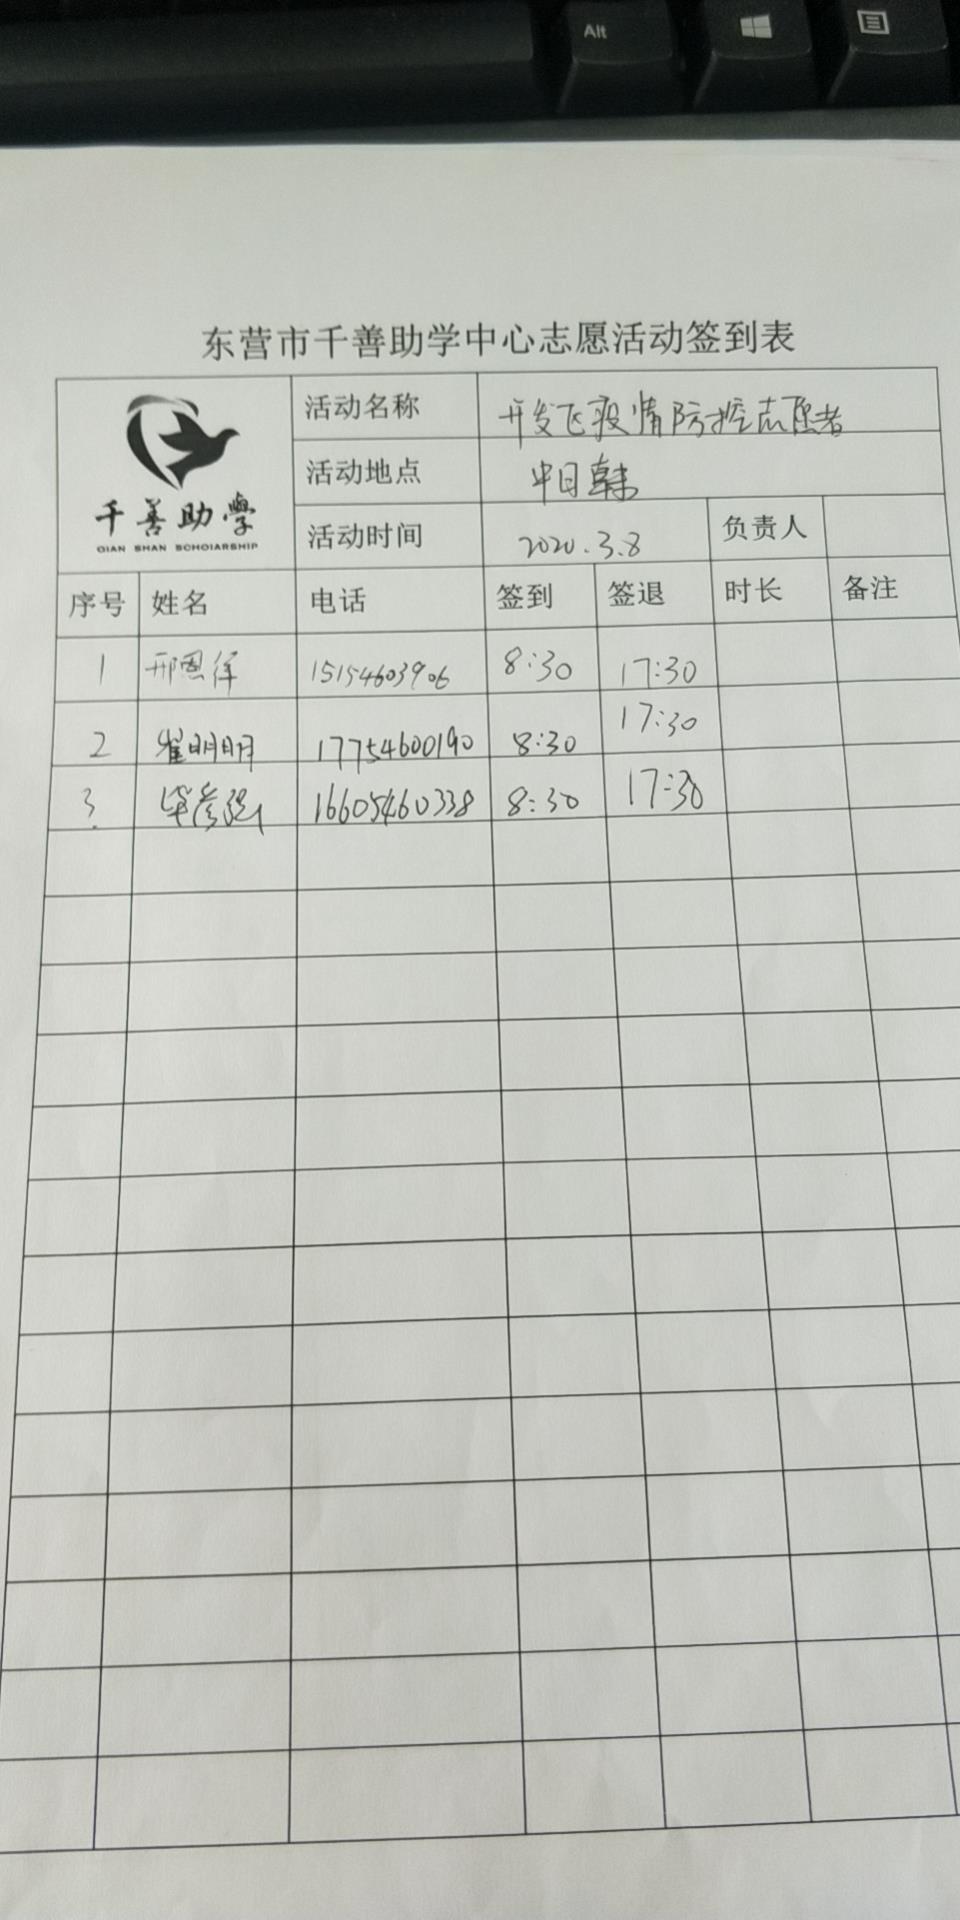 Alt
东营市千善助学中心志愿活动签到表
千善助學
QIAN SHAN SCHOIARSHIP
活动名称 开发区疫情防控志愿者
活动地点 中日韩
活动时间 2020.3.8 负责人
序号 姓名 电话 签到 签退 时长 备注
1 邢恩祥 15154603906 8:30 17:30
2 崔明明 17754600190 8:30 17:30
3. 16605460338 8:30 17:30